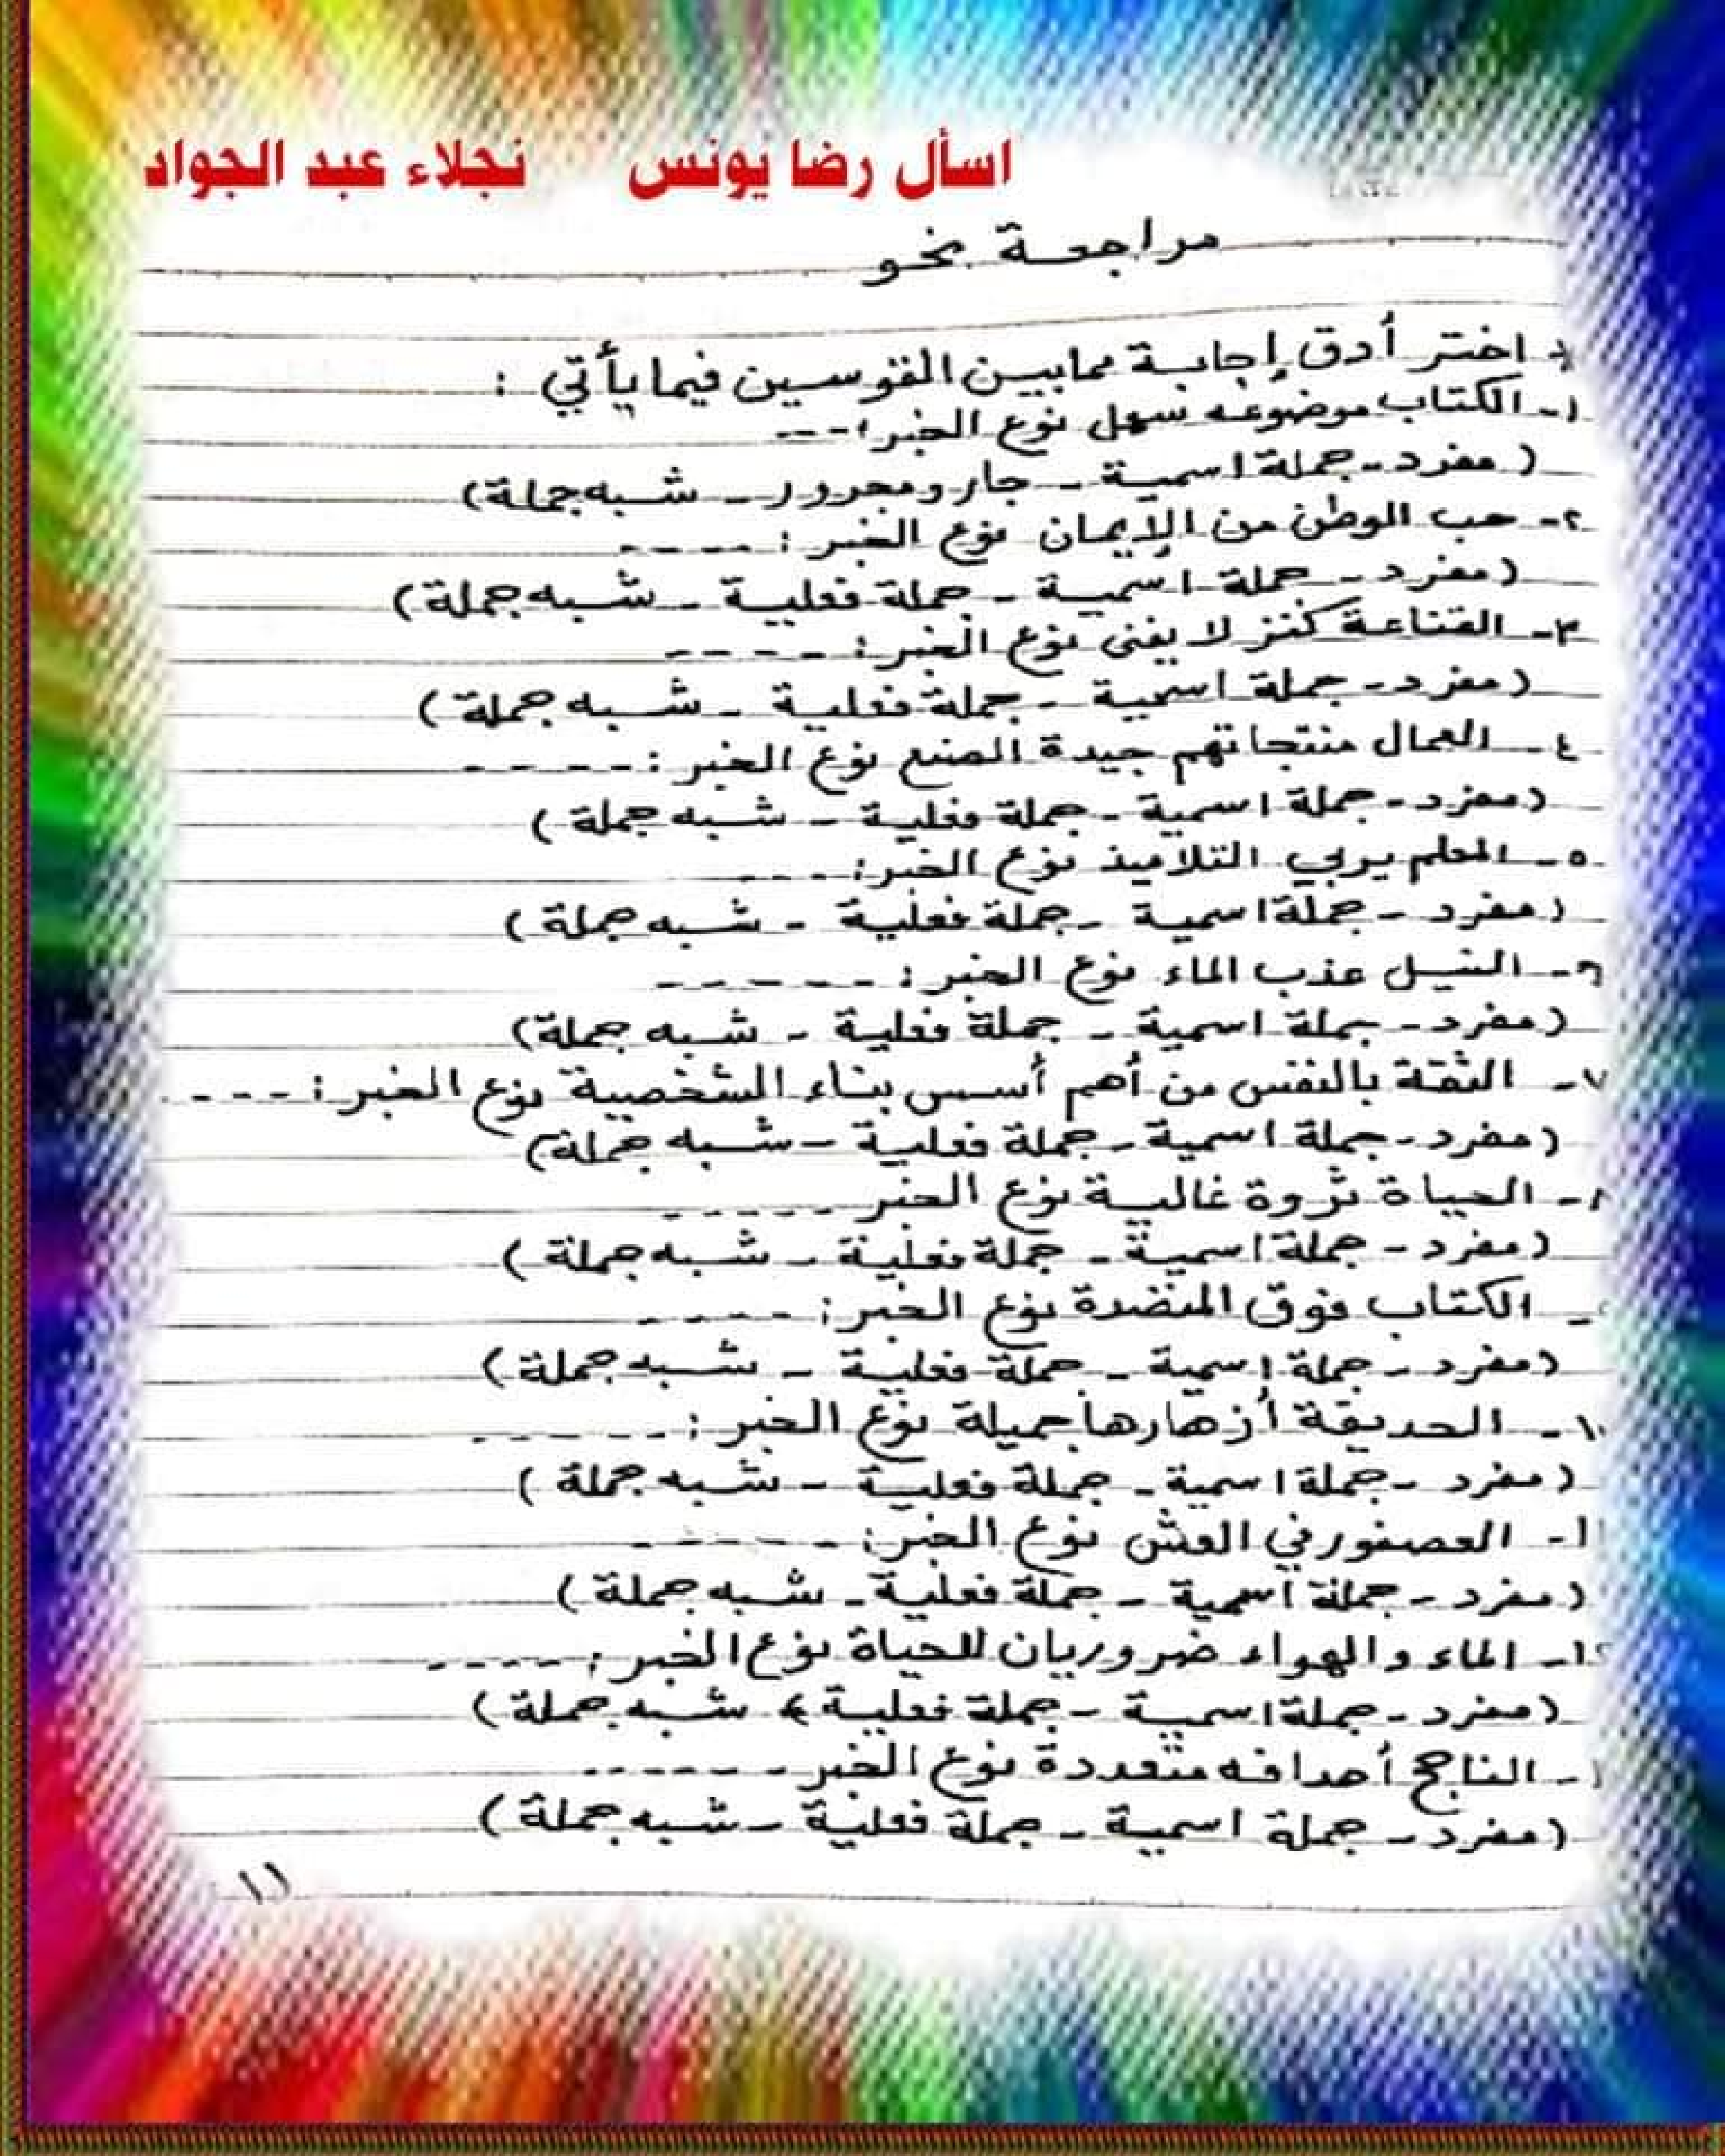 اسأل رضا يونس نجلاء عبد الجواد
مراجعة نحو
اختر أدق إجابة مما بين القوسين فيما يأتي :
١- الكتاب موضوعه سهل نوع الخبر : ---
( مفرد - جملة اسمية - جار ومجرور - شبه جملة )
٢- حب الوطن من الإيمان نوع الخبر : ----
( مفرد - جملة اسمية - جملة فعلية - شبه جملة )
٣- القناعة كنز لا يفنى نوع الخبر : ----
( مفرد - جملة اسمية - جملة فعلية - شبه جملة )
٤- العمال منتجاتهم جيدة الصنع نوع الخبر : ----
( مفرد - جملة اسمية - جملة فعلية - شبه جملة )
٥- المعلم يربي التلاميذ نوع الخبر : ---
( مفرد - جملة اسمية - جملة فعلية - شبه جملة )
٦- النيل عذب الماء نوع الخبر : -----
( مفرد - جملة اسمية - جملة فعلية - شبه جملة )
٧- الثقة بالنفس من أهم أسس بناء الشخصية نوع الخبر : ----
( مفرد - جملة اسمية - جملة فعلية - شبه جملة )
٨- الحياة ثروة غالية نوع الخبر -----
( مفرد - جملة اسمية - جملة فعلية - شبه جملة )
- الكتاب فوق المنضدة نوع الخبر : -----
( مفرد - جملة اسمية - جملة فعلية - شبه جملة )
١٠- الحديقة أزهارها جميلة نوع الخبر : -----
( مفرد - جملة اسمية - جملة فعلية - شبه جملة )
١١- العصفور في العش نوع الخبر : -----
( مفرد - جملة اسمية - جملة فعلية - شبه جملة )
١٢- الماء والهواء ضروريان للحياة نوع الخبر : ----
( مفرد - جملة اسمية - جملة فعلية - شبه جملة )
١- الناجح أهدافه متعددة نوع الخبر -----
( مفرد - جملة اسمية - جملة فعلية - شبه جملة )
١١